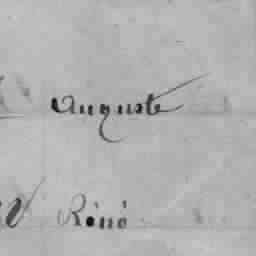 Auguste
Réné